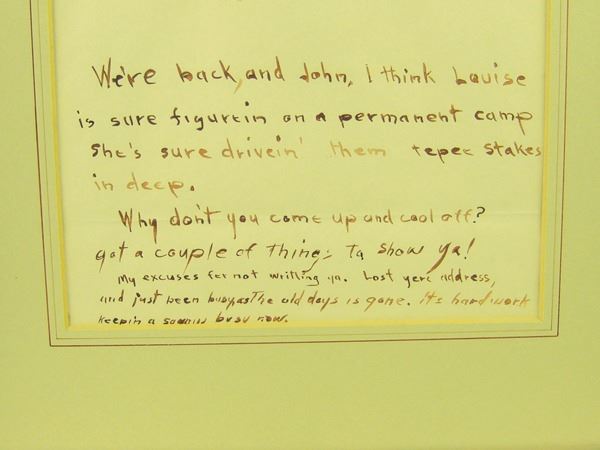 We're back, and John, I think Louise
is sure figurein on a permanent camp
She's sure drivein' them tepee stakes
in deep.
Why don't you come up and cool off?
got a couple of things ta show ya!
My excuses fer not writting ya. Lost yere address,
and just been busy, as The old days is gone. its hard work
keepin a busy now.